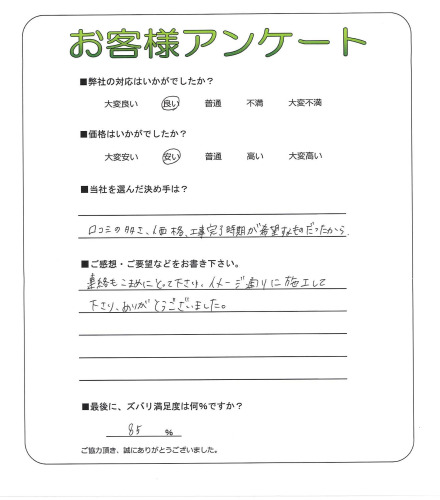 お客様アンケート
■弊社の対応はいかがでしたか？
大変良い 良い 普通 不満 大変不満
■価格はいかがでしたか？
大変安い 安い 普通 高い 大変高い
■当社を選んだ決め手は？
口コミの多さ、価格、工事完了時期が希望なものだったから
■ご感想・ご要望などをお書き下さい。
連絡もこまめにとって下さり、イメージ通りに施工して
下さり、ありがとうございました。
■最後に、ズバリ満足度は何%ですか？
85 %
ご協力頂き、誠にありがとうございました。